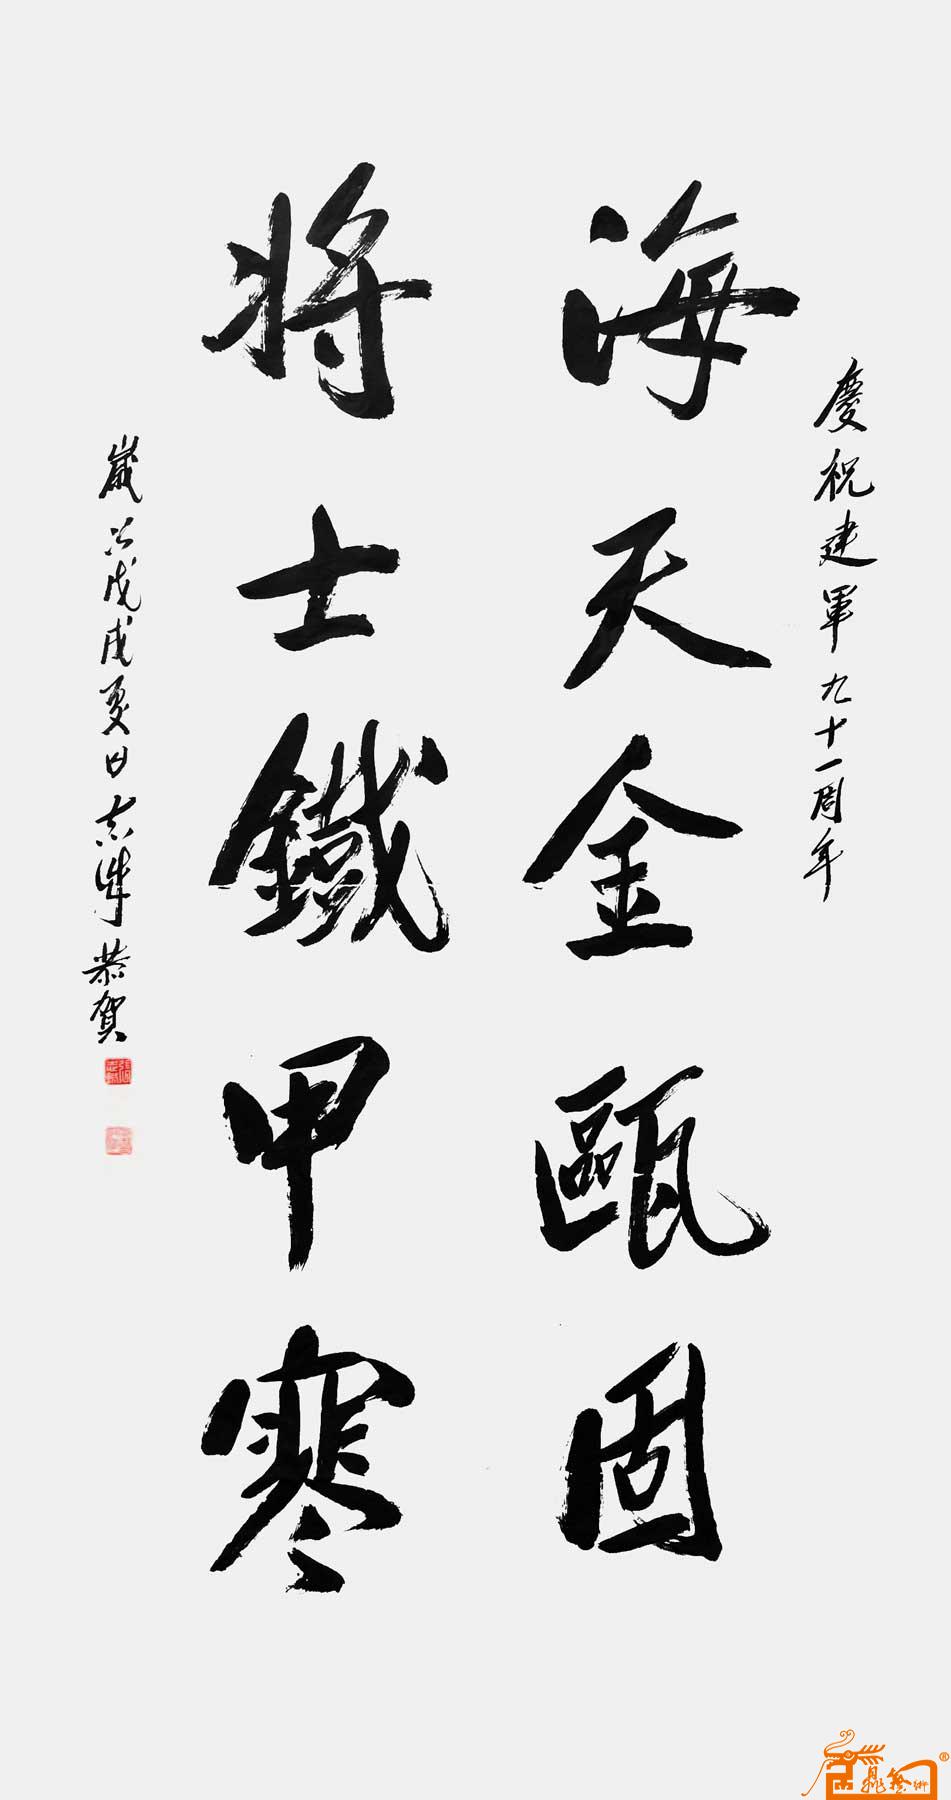 慶祝建軍九十一周年
海天金甌固
將士鐵甲寒
歲次戊戌夏日志誠恭賀